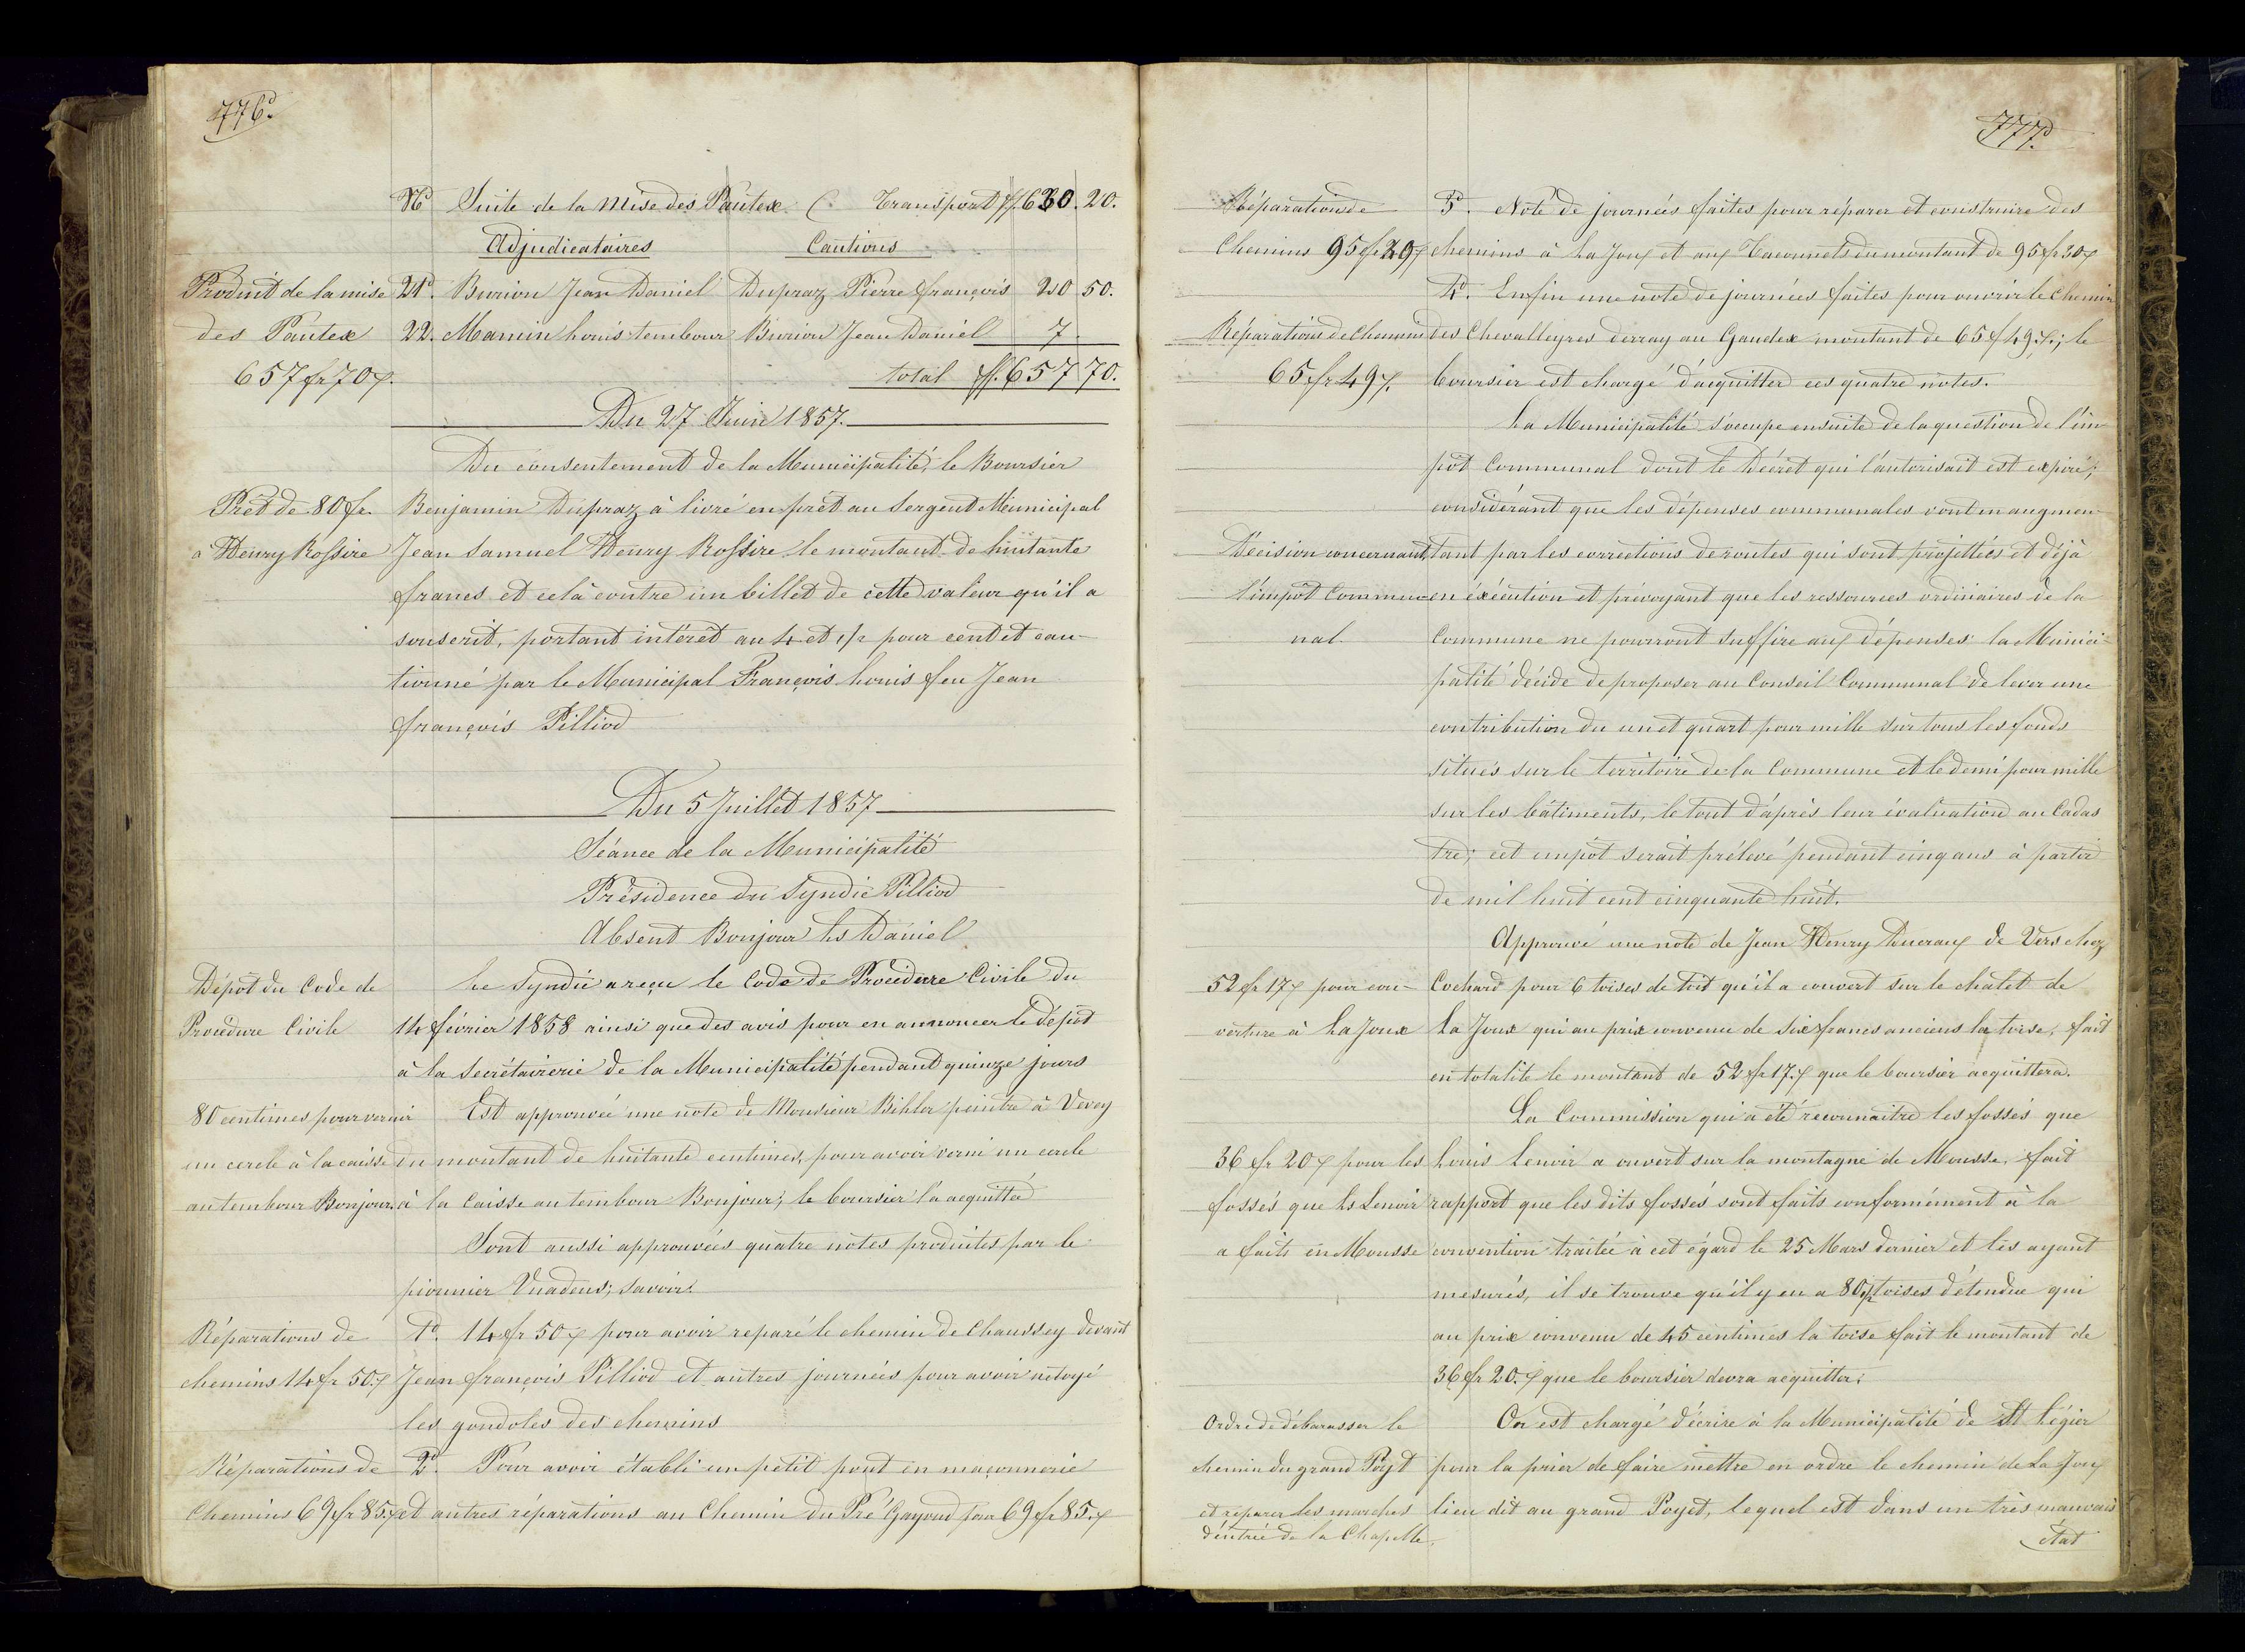 776.
No Suite de la Mise des Pautex. ( Transport ff. 630. 20.
Adjudicataires Cautions
Produit de la mise 21. Burion Jean Daniel Dupraz Pierre françois 20 50.
des Pautex 22. Mamin Louis tembour Burion Jean Daniel 7.
657 fr 70 total ff. 657 70.
Du 27 Juin 1857.
Du consentement de la Municipalité, le Boursier
Prêt de 80 fr. Benjamin Dupraz à livré en prêt au Sergent Municipal
a Henry Rossire Jean Samuel Henry Rossire le montant de huitante
francs et celà contre un billet de cette valeur qu'il a
souscrit, portant intérêt au 4 et 1/2 pour cent et cau-
tionné par le Municipal François Louis feu Jean
françois Pilliod
Du 5 Juillet 1857
Séance de la Municipalité
Présidence du Syndic Pilliod
Absent Bonjour Ls Daniel
Dépôt du Code de Le Syndic a reçu le Code de Procédure Civile du
Procédure Civile 14 février 1858 ainsi que des avis pour en annoncer le dépôt
à la Secrétairerie de la Municipalité pendant quinze jours
80 centimes pour vernir Est approuvée une note de Monsieur Bihler peintre à Vevey
un cercle à la caisse du montant de huitante centimes, pour avoir verni un cercle
au tembour Bonjour. à la Caisse au tembour Bonjour; le boursier l'a acquitté
Sont aussi approuvées quatre notes produites par le
pionnier Vuadens; savoir.
Réparations de 1o. 14 fr 50 pour avoir reparé le chemin de Chaussey devant
chemins 14 fr 50. Jean françois Pilliod et autres journées pour avoir netoyé
les gondoles des chemins
Réparations de 2o. Pour avoir établi un petit pont en maçonnerie
Chemins 69 fr 85. et autres réparations au Chemin du Pré Gayoud pour 69 fr 85.
777.
Réparation de 3o. Note de journées faites pour réparer et construire des
Chemins 95 fr chemins à La Joux et aux du montant de 95 fr 30
4o. Enfin une note de journées faites pour ouvrir le Chemin
Réparations de Chemin des Chevalleyres derray au Gaudex montant de 65 f 49.; le
65 fr 49. boursier est chargé d'acquitter ces quatre notes.
La Municipalité s'occupe ensuite de la question de l'im
pôt Communal dont le Décret qui l'autorisait est expiré;
considérant que les dépenses communales vont en augmen-
Décision concernant tant par les corrections de routes qui sont projettées et déjà
l'impôt Commu- en éxécution et prévoyant que les ressources ordinaires de la
nal. Commune ne pourront suffire aux dépenses: la Munici-
palité décide de proposer au Conseil Communal de lever une
contribution du un et quart pour mille sur tous les fonds
situés sur le territoire de la Commune et le demi pour mille
sur les bâtiments, le tout d'après leur évaluation au Cadas
tre; cet impôt serait prélevé pendant cinq ans à partir
de mil huit cent cinquante huit.
Approuvé une note de Jean Henry Ducraux de Vers chez
52 fr 17 pour cou- Cochard pour 6 toises de toit qu'il a couvert sur le chalet de
verture à La Joux La Joux qui au prix convenu de Six francs anciens la toise, fait
en totalité le montant de 52 fr 17. que le boursier acquittera.
La Commission qui a été reconnaitre les fossés que
36 fr 20 pour les Louis Lenoir a ouvert sur la montagne de Mousse, fait
fossés que Ls Lenoir rapport que les dits fossés sont faits conformément à la
a faits en Mousse convention traitée à cet égard le 25 Mars dernier et les ayant
mesurés, il se trouve qu'il y en a 80 1/2 toises d'étendue qui
au prix convenu de 45 centimes la toise fait le montant de
36 fr 20. que le boursier devra acquitter.
Ordre de débarasser le On est chargé d'écrire à la Municipalité de St Légier
chemin du grand Poyet pour la prier de faire mettre en ordre le chemin de La Joux
et réparer les marches lieu dit au grand Poyet, lequel est dans un très mauvais
d'entrée de la Chapelle. état